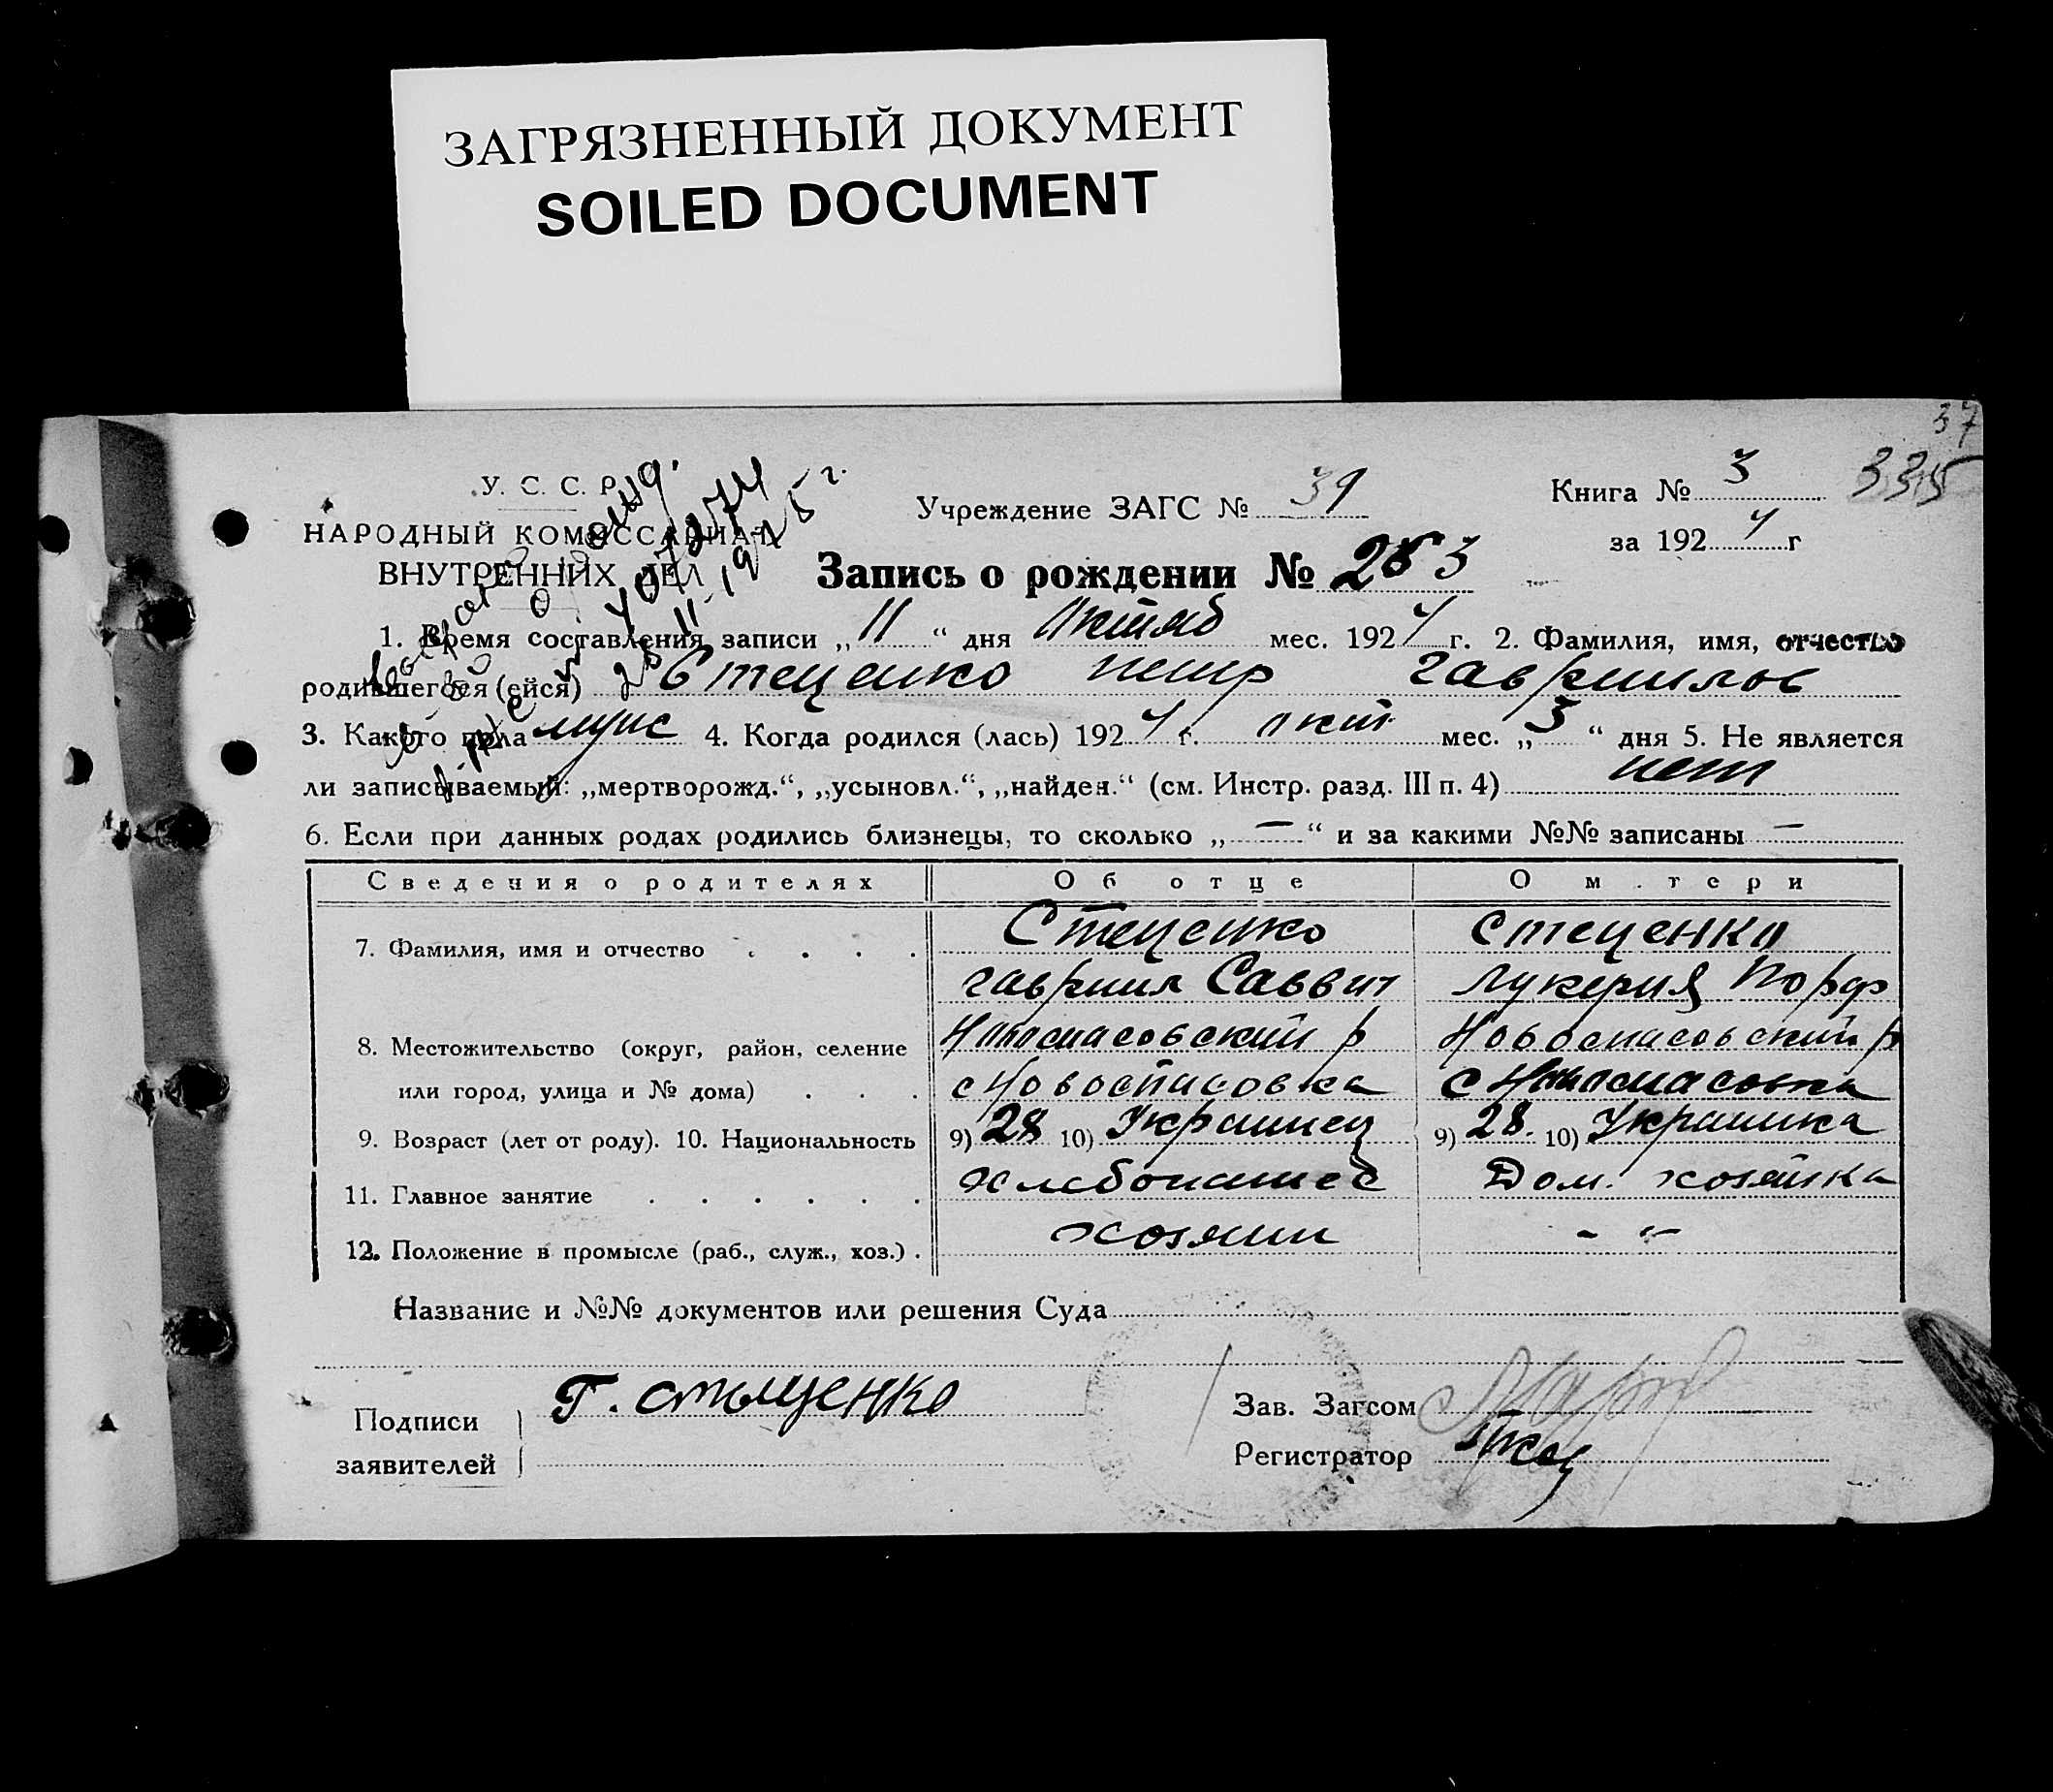 ЗАГРЯЗНЕННЫЙ ДОКУМЕНТ
SOILED DOCUMENT
37
335
У. С. С. Р.
НАРОДНЫЙ КОМИССАРИАТ
ВНУТРЕННИХ ДЕЛ
Учреждение ЗАГС № 39
Книга № 3
за 1924 г
Запись о рождении № 283
1. Время составления записи „11“ дня Октяб мес. 1924 г. 2. Фамилия, имя, отчество
родившегося (ейся) Стеценко петр гаврилов
3. Какого пола муж 4. Когда родился (лась) 1924 г. окт мес. „3“ дня 5. Не является
ли записываемый: „мертворожд.“, „усыновл.“, „найден.“ (см. Инстр. разд. III п. 4) нет
6. Если при данных родах родились близнецы, то сколько „—“ и за какими №№ записаны —
Сведения о родителях Об отце О м.тери
7. Фамилия, имя и отчество . . . . Стеценко Стеценко
гавриил Саввит Лукерия Порф
8. Местожительство (округ, район, селение Новоспасовский р Новоспасовский р
или город, улица и № дома) . . . с Новоспасовка с Новоспасовка
9. Возраст (лет от роду). 10. Национальность 9) 28 10) Украинец 9) 28. 10) Украинка
11. Главное занятие . . . . . . Хлебопашец Дом. хозяйка
12. Положение в промысле (раб., служ., хоз.) . хозяин - "-
Название и №№ документов или решения Суда
Подписи
заявителей
Г. стыценко
Зав. Загсом
Регистратор